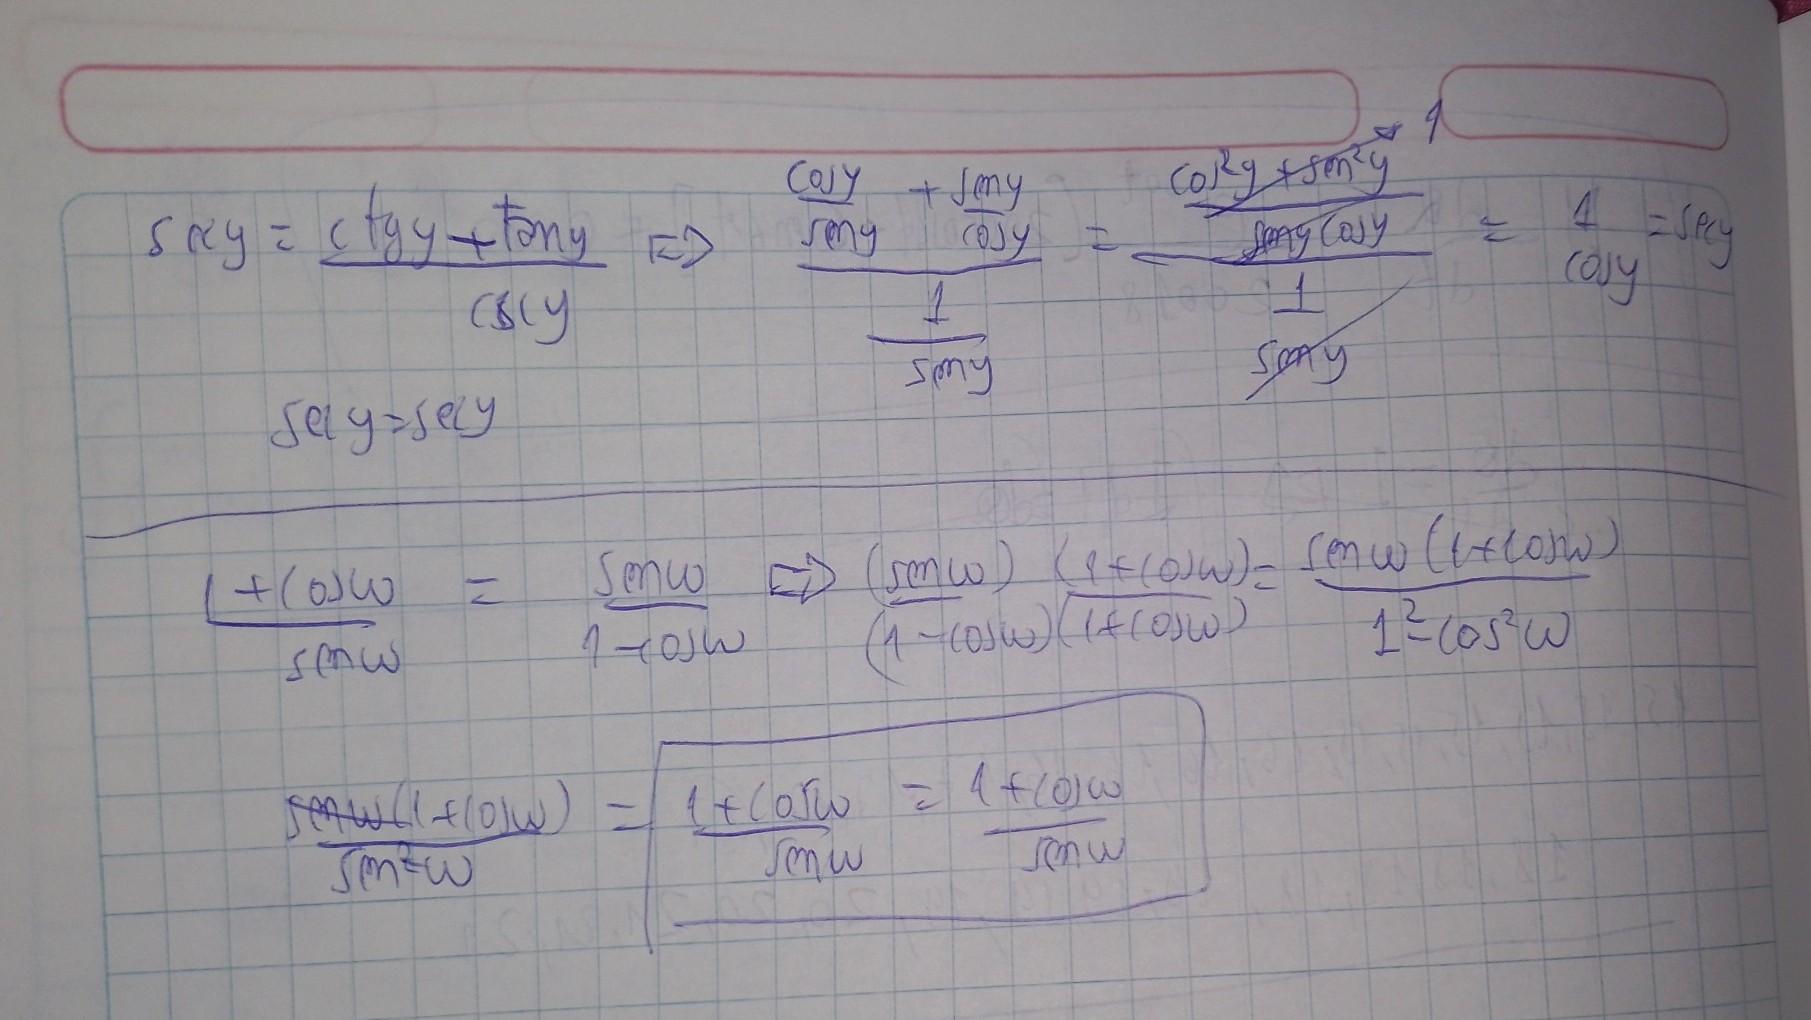 sec y = (ctg y + tan y)/(csc y) ⇒ (cos y/sen y + sen y/cos y)/(1/sen y) = ((cos²y + sen²y)/(sen y cos y))/(1/sen y) → 1 = 1/cos y = sec y
sec y = sec y
(1 + cos w)/(sen w) = (sen w)/(1 - cos w) ⇒ (sen w)(1 + cos w)/(1 - cos w)(1 + cos w) = sen w (1 + cos w)/(1² - cos² w)
sen w (1 + cos w)/(sen² w) = (1 + cos w)/(sen w) = (1 + cos w)/(sen w)